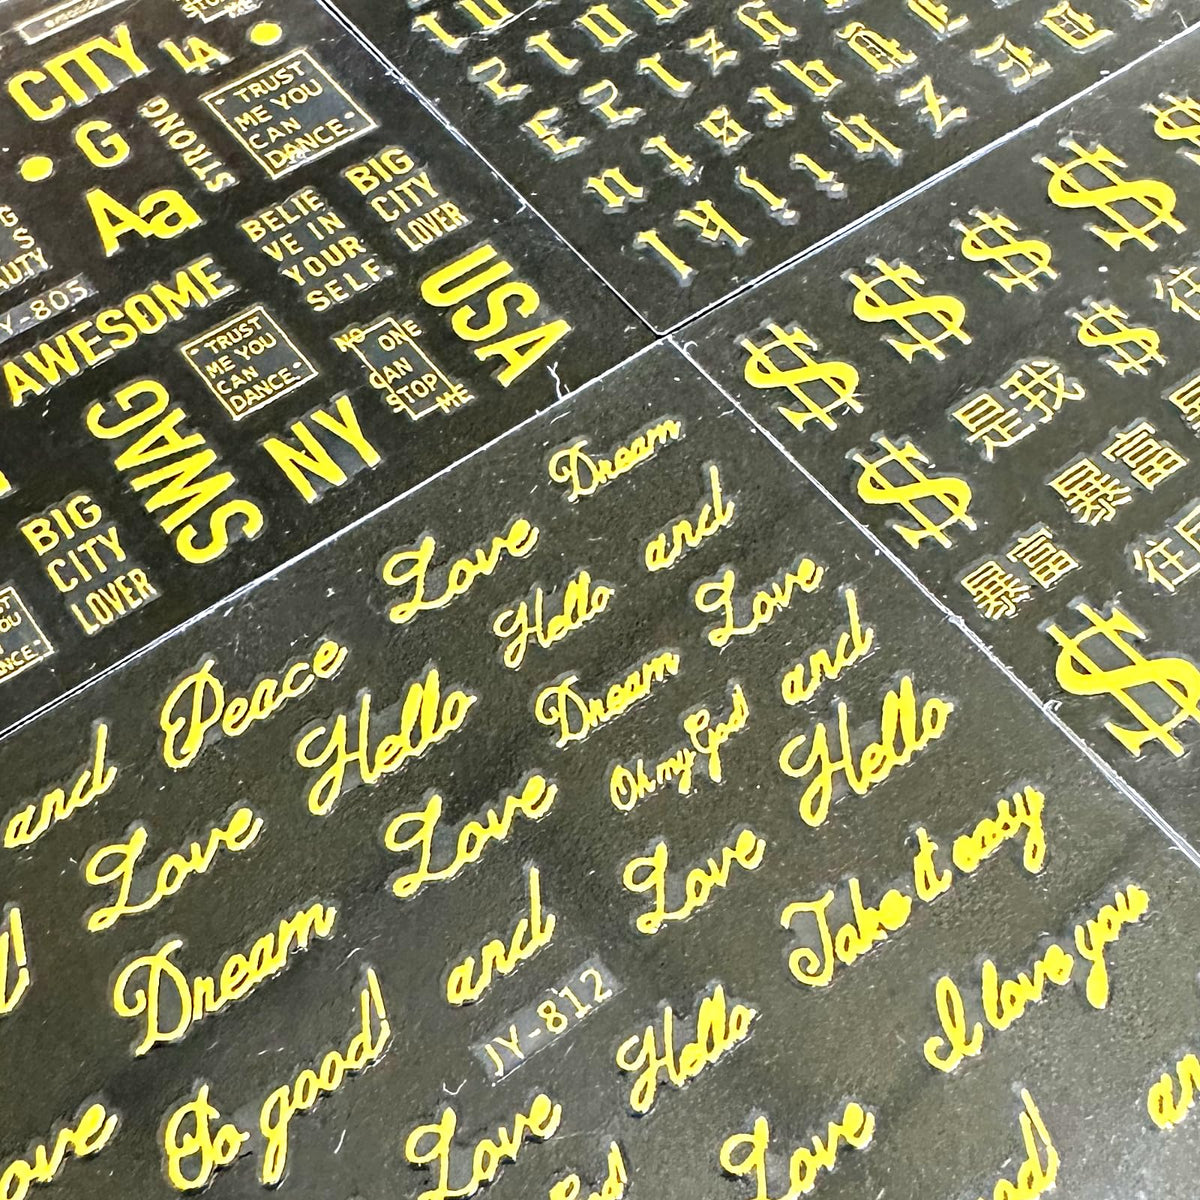 CITY
LA
G
STRONG
TRUST
ME YOU
CAN
DANCE.
Aa
BELIE
VE IN
YOUR
SELF.
BIG
CITY
LOVER
AUTY
Y-805
AWESOME
USA
TRUST
ME YOU
CAN
DANCE.
NO ONE
CAN
STOP
ME
SWAG
NY
BIG
CITY
LOVER
$
$
$
$
$
是我
$
暴富
暴富
$
Dream
Love
and
Hello
Love
Peace
and
Hello
Dream
and
Oh my God
Love
Love
Hello
Love
Take it easy
Dream
and
I love you
So good!
JY-812
Hello
Love
Love